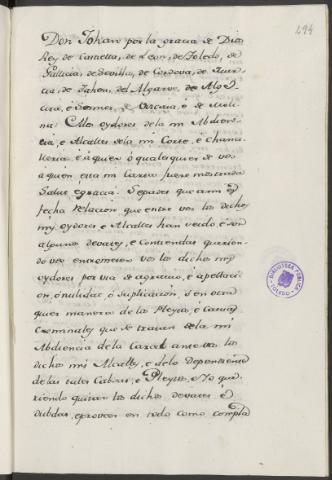 194
Don Johan por la gracia de Dios
Rey de Castilla, de Leon, de Toledo, de
Gallicia, de Sevilla, de Cordova, de Mur-
cia, de Jahen, del Algarve, de Alg
cira, é Señor de Vizcaia, é de Moli-
na A los oydores de la mi Abdien-
cia, é Alcaldes de la mi Corte, é chanci-
lleria, é á quien ó qualesquier de vos
á quien esta mi Carta fuere mostrada
Salud é gracia. Sepades que á mi es
fecha relacion que entre vos los dichos
my oydores é Alcaldes han veido é son
algunos devates, é contiendas querien-
do vos entremeter vos los dichos my
oydores por via de agravio, é apellaci-
on, ó nulidad, ó suplicacion, ó en otra
quier manera de los Pleytos, é Causas
Criminales que se tratan de la mi
Abdiencia de la Carcel ante vos los
dichos mis Alcaldes, é de lo dependiente
de las tales Cabsas, é Pleytos, é Yo que-
riendo quitar los dichos devates é
dubdas, é proveer en todo como cumpla
BIBLIOTECA PUBLICA
TOLEDO